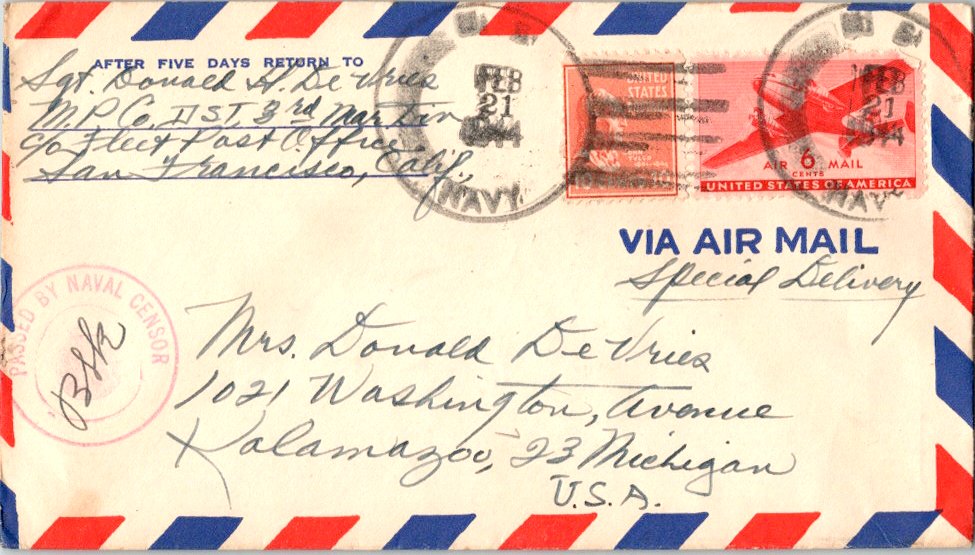 AFTER FIVE DAYS RETURN TO
Sgt. Donald H. De Vries
M.P. Co. 1st, 3rd Martin
c/o Fleet Post Office
San Francisco, Calif.,
FEB
21
1944
NAVY
UNITED
STATES
10 10
FEB
21
NAVY
AIR 6 MAIL
CENTS
UNITED STATES OF AMERICA
VIA AIR MAIL
Special Delivery
PASSED BY NAVAL CENSOR
Mrs. Donald De Vries
1021 Washington, Avenue
Kalamazoo, 23 Michigan
U.S.A.